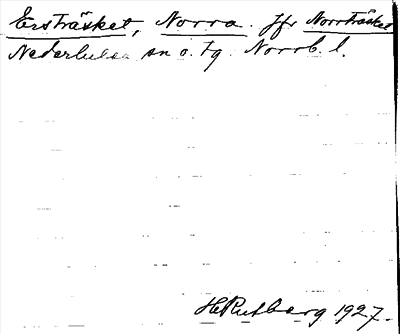 Ersträsket, Norra. Jfr Norrträsket
Nederlulea sn o. tg. Norrb. l.
H Rutberg 1927.